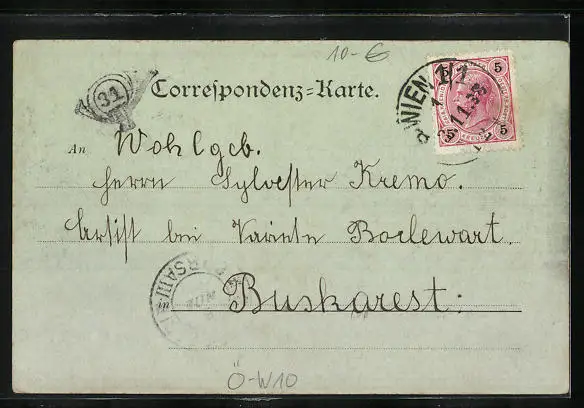 10-€
31
Correspondenz=Karte.
WIEN 1/1
5 5
5 5
An Wohlgeb.
Herrn Sylvester Kremo.
Artist bei Variete Boclewart.
in Buskarest.
Ö-W10